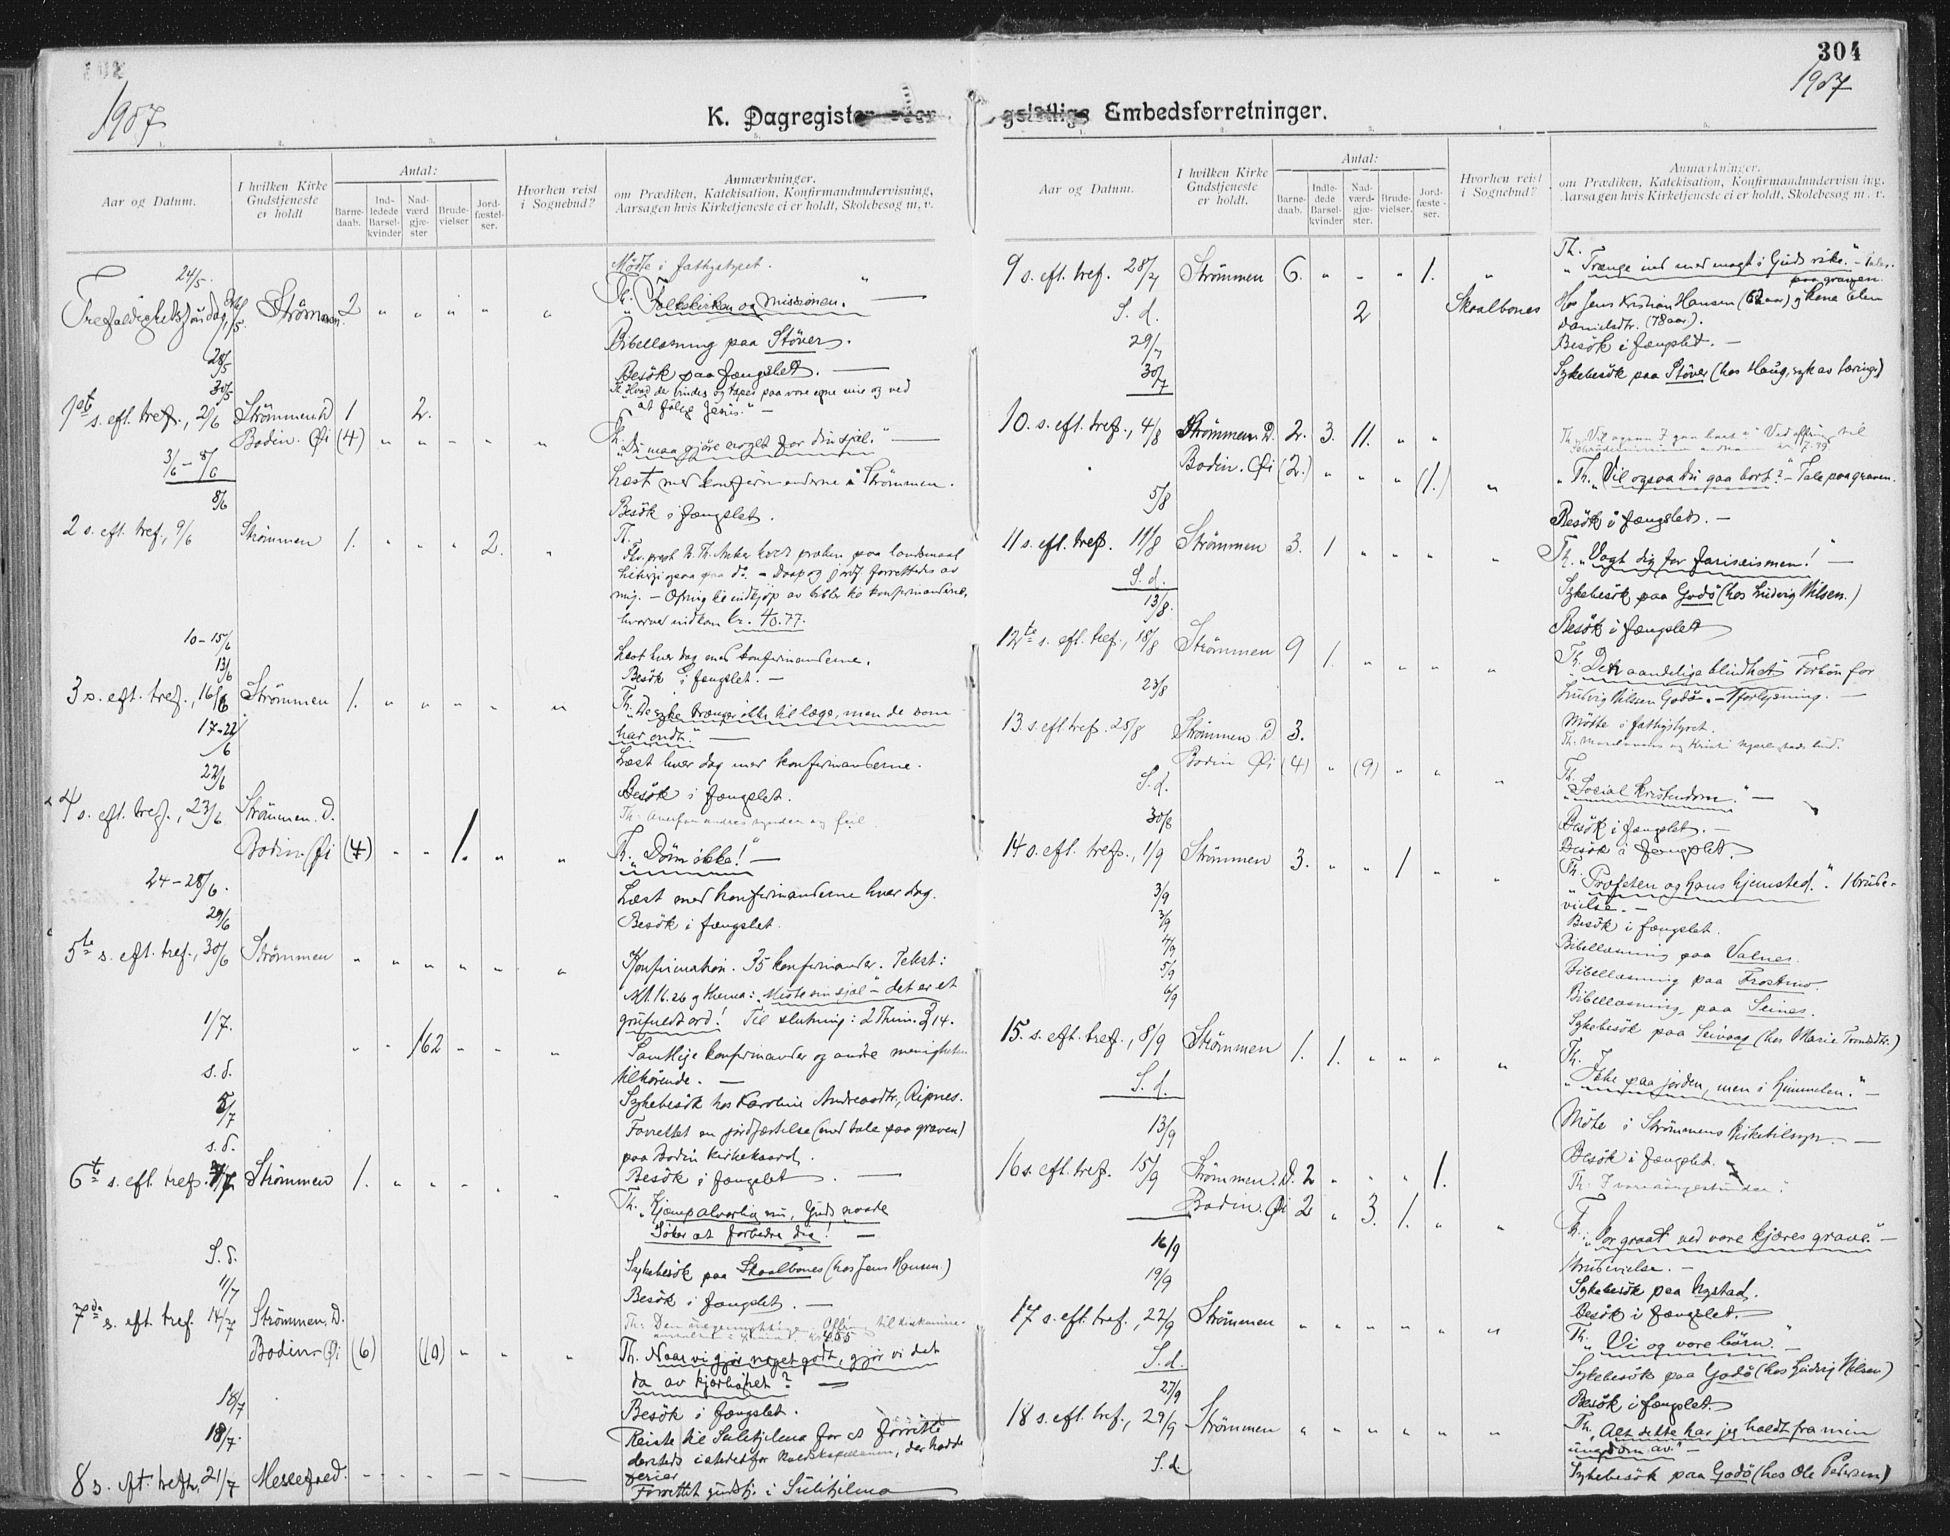 304
1907
1907
K. Dagregister over
geistlige Embedsforretninger.
1. 2. 3. 4. 5.
Aar og Datum.
I hvilken Kirke Gudstjeneste er holdt
Antal:
Barne-daab.
Ind-ledede Barsel-kvinder
Nad-værd gjæ-ster
Brude-vielser
Jord-fæstel-ser.
Hvorhen reist i Sognebud?
Anmærkninger.
om Prædiken, Katekisation, Konfirmandundervisning,
Aarsagen hvis Kirketjeneste ei er holdt, Skolebesøg m. v.
24/5. Møte i fattigstyret.
Trefoldighetssøndag, Strømmen 2 " " " " " Th. "Folkekirken og missionen." —
Bibellæsning paa Støver.
28/5
Besøk paa fængslet. —
30/5
1ste s. eft. tref., 2/6 Strømmen D 1 2.
at følge Jesus." —
Bodin. Øi (4) " " " " " Th. "Du maa gjøre noget for din sjæl." —
3/6 – 8/6 Læst med konfirmanderne i Strømmen.
8/6 Besøk i fængslet.
2 s. eft. tref., 9/6 Strømmen 1. " " " 2. " Th.
mig. — Ofring til indkjøp av bibler til konfirmanderne,
hvorved indkom kr. 40.77.
10 – 15/6 Læst hver dag med konfirmanderne.
13/6 Besøk i fængslet. —
3 s. eft. tref., 16/6 Strømmen 1. " " " " " Th. "De syke trænger ikke til læge, men de som
har ondt." —
17-22/6 Læst hver dag med konfirmanderne.
22/6 Besøk i fængslet.
4 s. eft. tref., 23/6 Strømmen. D.
Bodin. Øi (4) " " 1. " " Th. "Døm ikke!" —
24 – 28/6. Læst med konfirmanderne hver dag.
29/6 Besøk i fængslet.
5te s. eft. tref., 30/6 Strømmen " " " " " " Konfirmation. 35 konfirmander. Tekst:
Mt. 16.26 og thema: "Miste sin sjæl" – det er et
grufuldt ord! Til slutning: 2 Thim. 3 14.
1/7. " " 162 " " " Samtlige konfirmander og andre menigheten
tilhørende. —
s. d. Sykebesøk hos Karoline Andreasdtr., Ripnes.
5/7 Forrettet en jordfæstelse (med tale paa graven)
paa Bodin kirkegaard.
s. d. Besøk i fængslet. —
6te s. eft. tref. 7/7 Strømmen 1. " " " " " Th. "Kjæmp alvorlig nu, Guds naade
Søker at forbedre dig! —
S. d. Sykebesøk paa Skaalbones (hos Jens Hansen)
11/7 Besøk i fængslet. —
7de s. eft. tref. 14/7 Strømmen, D.
Bodin – Øi (6) (10) " " " Th. Naar vi gjør noget godt, gjør vi det
da av kjærlighet? —
18/7 Besøk i fængslet.
18/7. Reiste til Sulitjelma for at forrette
ferier
8 s. eft. tref., 21/7 Messefald. Forrettet gudstj. i Sulitjelma
1. 2. 3. 4. 5.
Aar og Datum.
I hvilken Kirke Gudstjeneste er holdt.
Antal:
Barne-daab.
Indle-dede Barsel-kvinder
Nad-værd-gjæ-ster
Brude-vielser.
Jord-fæste-ser.
Hvorhen reist i Sognebud?
Anmærkninger.
om Prædiken, Katekisation, Konfirmandundervisn ing.
Aarsagen hvis Kirketjeneste ei er holdt, Skolebesøg m. v.
9 s. eft. tref. 28/7 Strømmen 6. " " " 1. " Th. "Trænge ind med magt i Guds rike." – Tale
paa graven.
S. d. 2 Skaalbones Hos Jens Kristian Hansen
Danielsdtr. (78 aar).
29/7 Besøk i fængslet. —
30/7 Sykebesøk paa Støver (hos Haug, syk av tæring)
10. s. eft. tref., 4/8 Strømmen. D. 2. 3. 11. " "
Bodin. Øi (2.) " " " (1.) " Th. "Vil ogsaa du gaa bort?" – Tale paa graven.
5/8 Besøk i fængslet. —
11 s. eft. tref. 11/8 Strømmen 3. 1 " " " " Th. "Vogt dig for fariseismen!" —
S. d. Sykebesøk paa Godø (hos Ludvig Nilsen.)
13/8. Besøk i fængslet
12te s. eft. tref., 18/8 Strømmen 9 1. " " " " Th. Den aandelige blindhet. Forbøn for
Ludvig Nilsen Godø. —
23/8 Møte i fattigstyret.
13. s. eft tref. 25/8 Strømmen. D 3.
Bodin Øi (4) " (9) " " " Th. "Social kristendom." —
S. d. Besøk i fængslet. —
30/8 Besøk i fængslet.
14 s. eft. tref., 1/9 Strømmen 3. " " 1 " " Th. "Profeten og hans hjemsted." 1 brude-
vielse. —
3/9 Besøk i fængslet.
3/9 Bibellæsning paa Valnes.
4/9 Bibellæsning paa Frostmo.
5/9 Bibellæsning paa Seines.
6/9 Sykebesøk paa Seivaag (hos Marie Trondsdtr.)
15. s. eft. tref., 8/9 Strømmen 1. 1. " " " " Th. "Ikke paa jorden, men i himmelen." —
S. d. Møte i Strømmens kirketilsyn. —
13/9 Besøk i fængslet.
16 s. eft. tref. 15/9 Strømmen. D. 2 " " " 1.
Bodin. Øi 2 " 3. 1. " " Th. "Vor graat ved vore kjæres grave." —
Brudevielse. —
16/9 Sykebesøk paa Nystad.
19/9 Besøk i fængslet. —
17 s. eft. tref., 22/9 Strømmen " " " " " " Th. "Vi og vore børn." —
S. d. Sykebesøk paa Godø (hos Ludvig Nilsen)
27/9 Besøk i fængslet. —
18 s. eft. tref., 29/9 Strømmen " " " " " " Th. "Alt dette har jeg holdt fra min
ungdom av." —
S. d Sykebesøk paa Godø (hos Ole Pedersen)